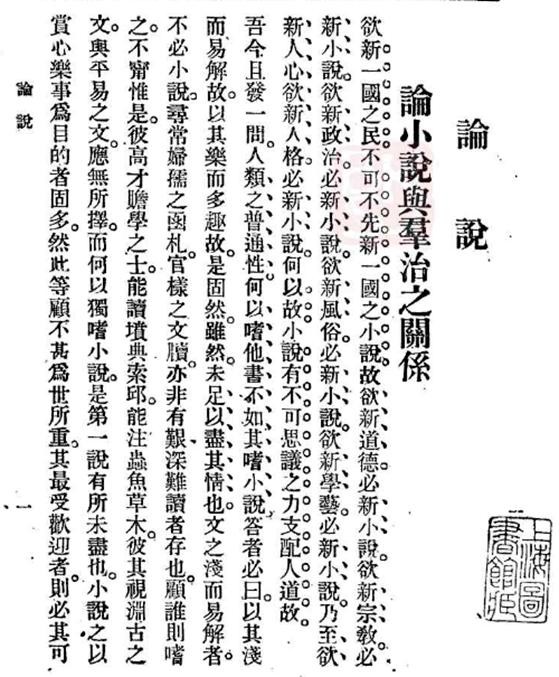 論說
論小說與羣治之關係
欲新一國之民。不可不先新一國之小說。故欲新道德。必新小說。欲新宗敎。必
新小說。欲新政治。必新小說。欲新風俗。必新小說。欲新學藝。必新小說。乃至欲
新人心。欲新人格。必新小說。何以故。小說有不可思議之力支配人道故。
吾今且發一問。人類之普通性。何以嗜他書不如其嗜小說。答者必曰。以其淺
而易解故。以其樂而多趣故。是固然。雖然。未足以盡其情也。文之淺而易解者。
不必小說。尋常婦孺之函札。官樣之文牘。亦非有艱深難讀者存也。顧誰則嗜
之。不甯惟是。彼高才贍學之士。能讀墳典索邱。能注蟲魚草木。彼其視淵古之
文與平易之文。應無所擇。而何以獨嗜小說。是第一說有所未盡也。小說之以
賞心樂事爲目的者固多。然此等顧不甚爲世所重。其最受歡迎者。則必其可
論說
一
上海圖
書館藏